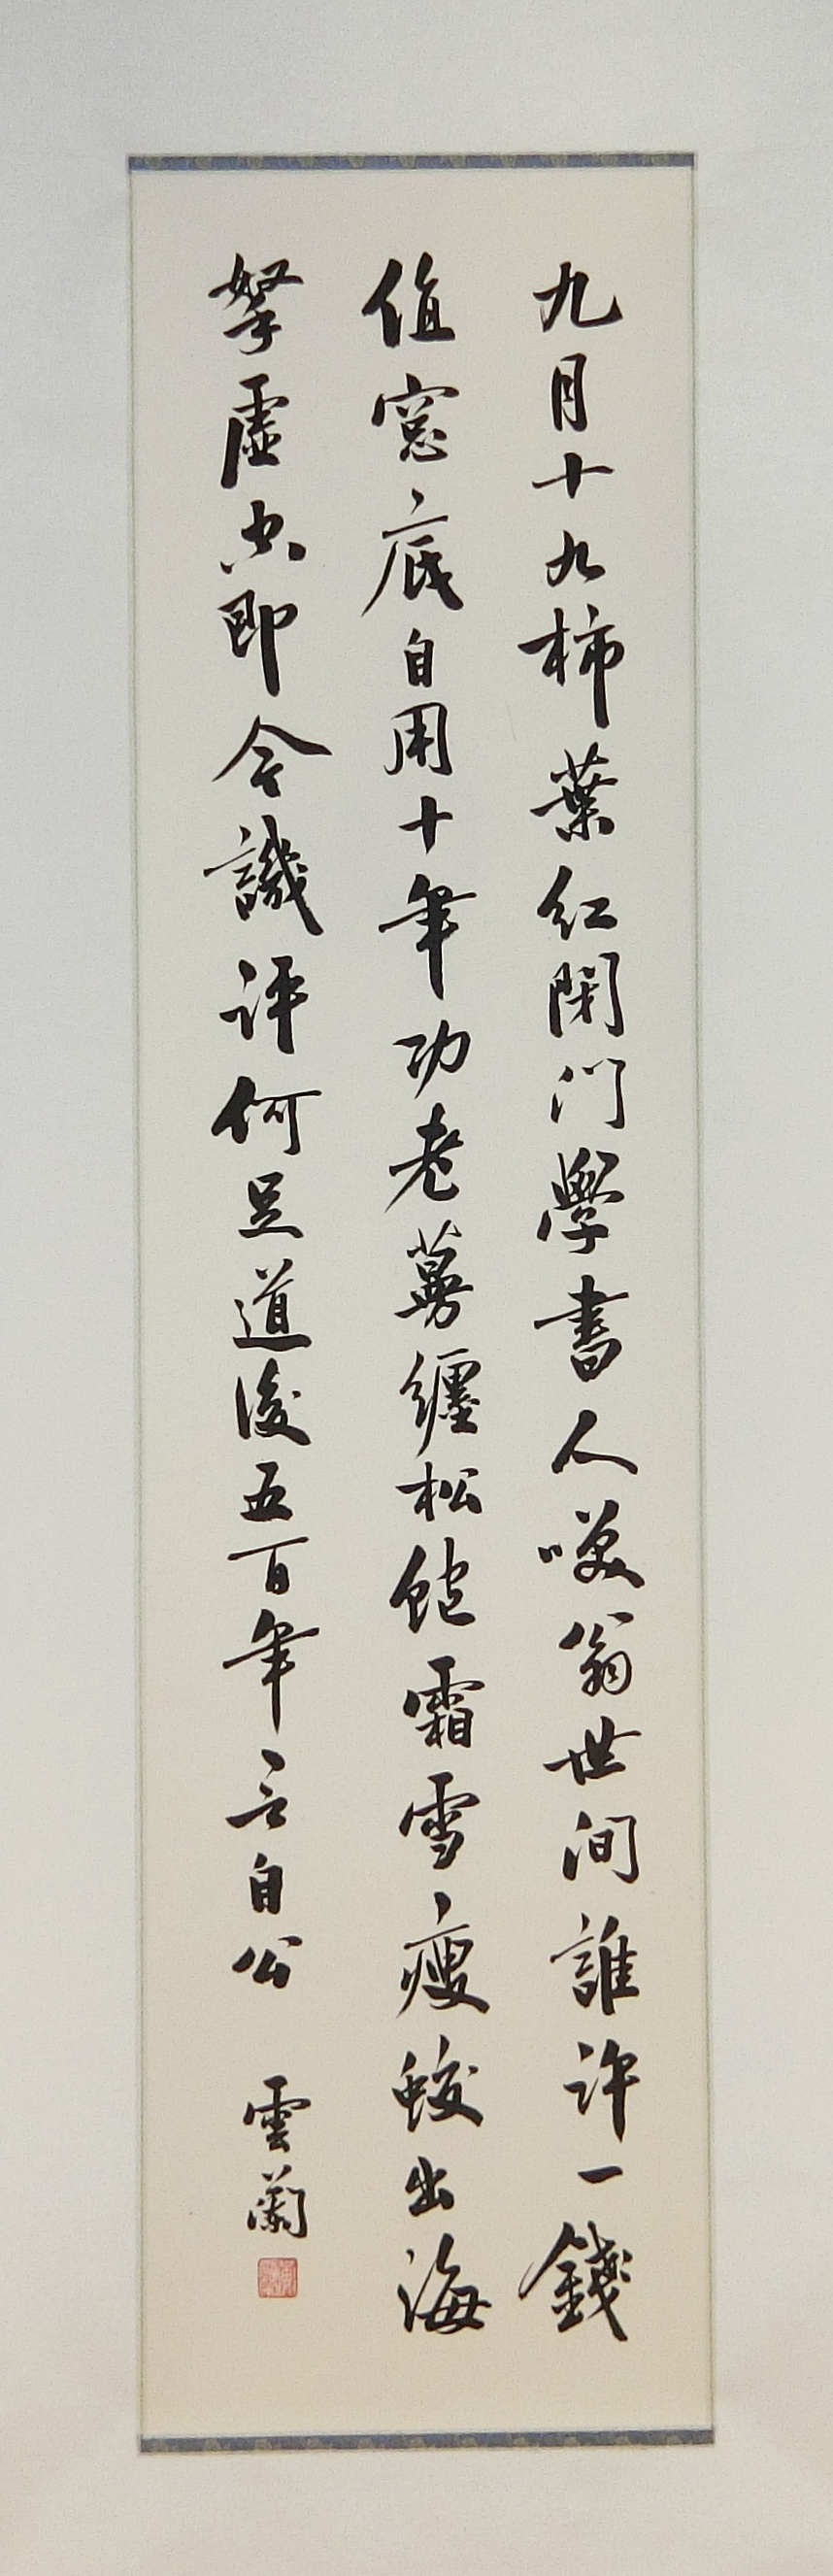 九月十九柿葉紅閉門學書人咲翁世間誰許一錢
值窓底自用十年功老蔓纏松飽霜雪瘦蛟出海
拏虛空即今譏評何足道後五百年言自公 雲蘭